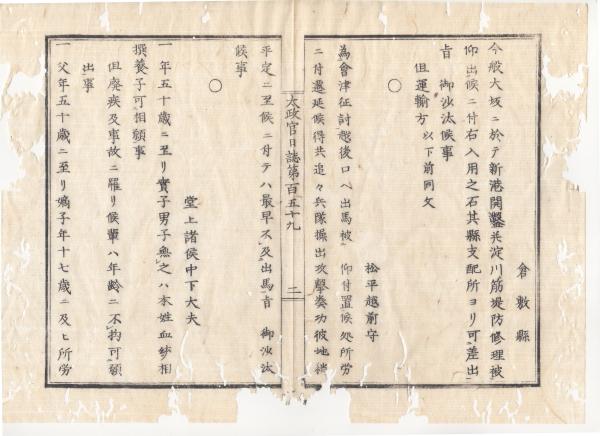 倉敷縣
今般大坂ニ於テ新港開鑿并淀川筋堤防修理被
仰出候ニ付右入用之石其縣支配所ヨリ可差出
旨 御沙汰候事
但運輸方以下前同文
○
松平越前守
為會津征討越後口ヘ出馬被 仰付置候処所労
ニ付遷延候得共追々兵隊操出攻撃奏功彼地稍
太政官日誌第百五十九 二
平定ニ至候ニ付テハ最早不及出馬旨 御沙汰
候事
○
堂上諸侯中下大夫
一年五十歳ニ至リ實子男子無之ハ本姓血脉相
撰養子可相願事
但廃疾及事故ニ罹リ候輩ハ年齢ニ不拘可願
出事
一父年五十歳ニ至リ嫡子年十七歳ニ及ヒ所労